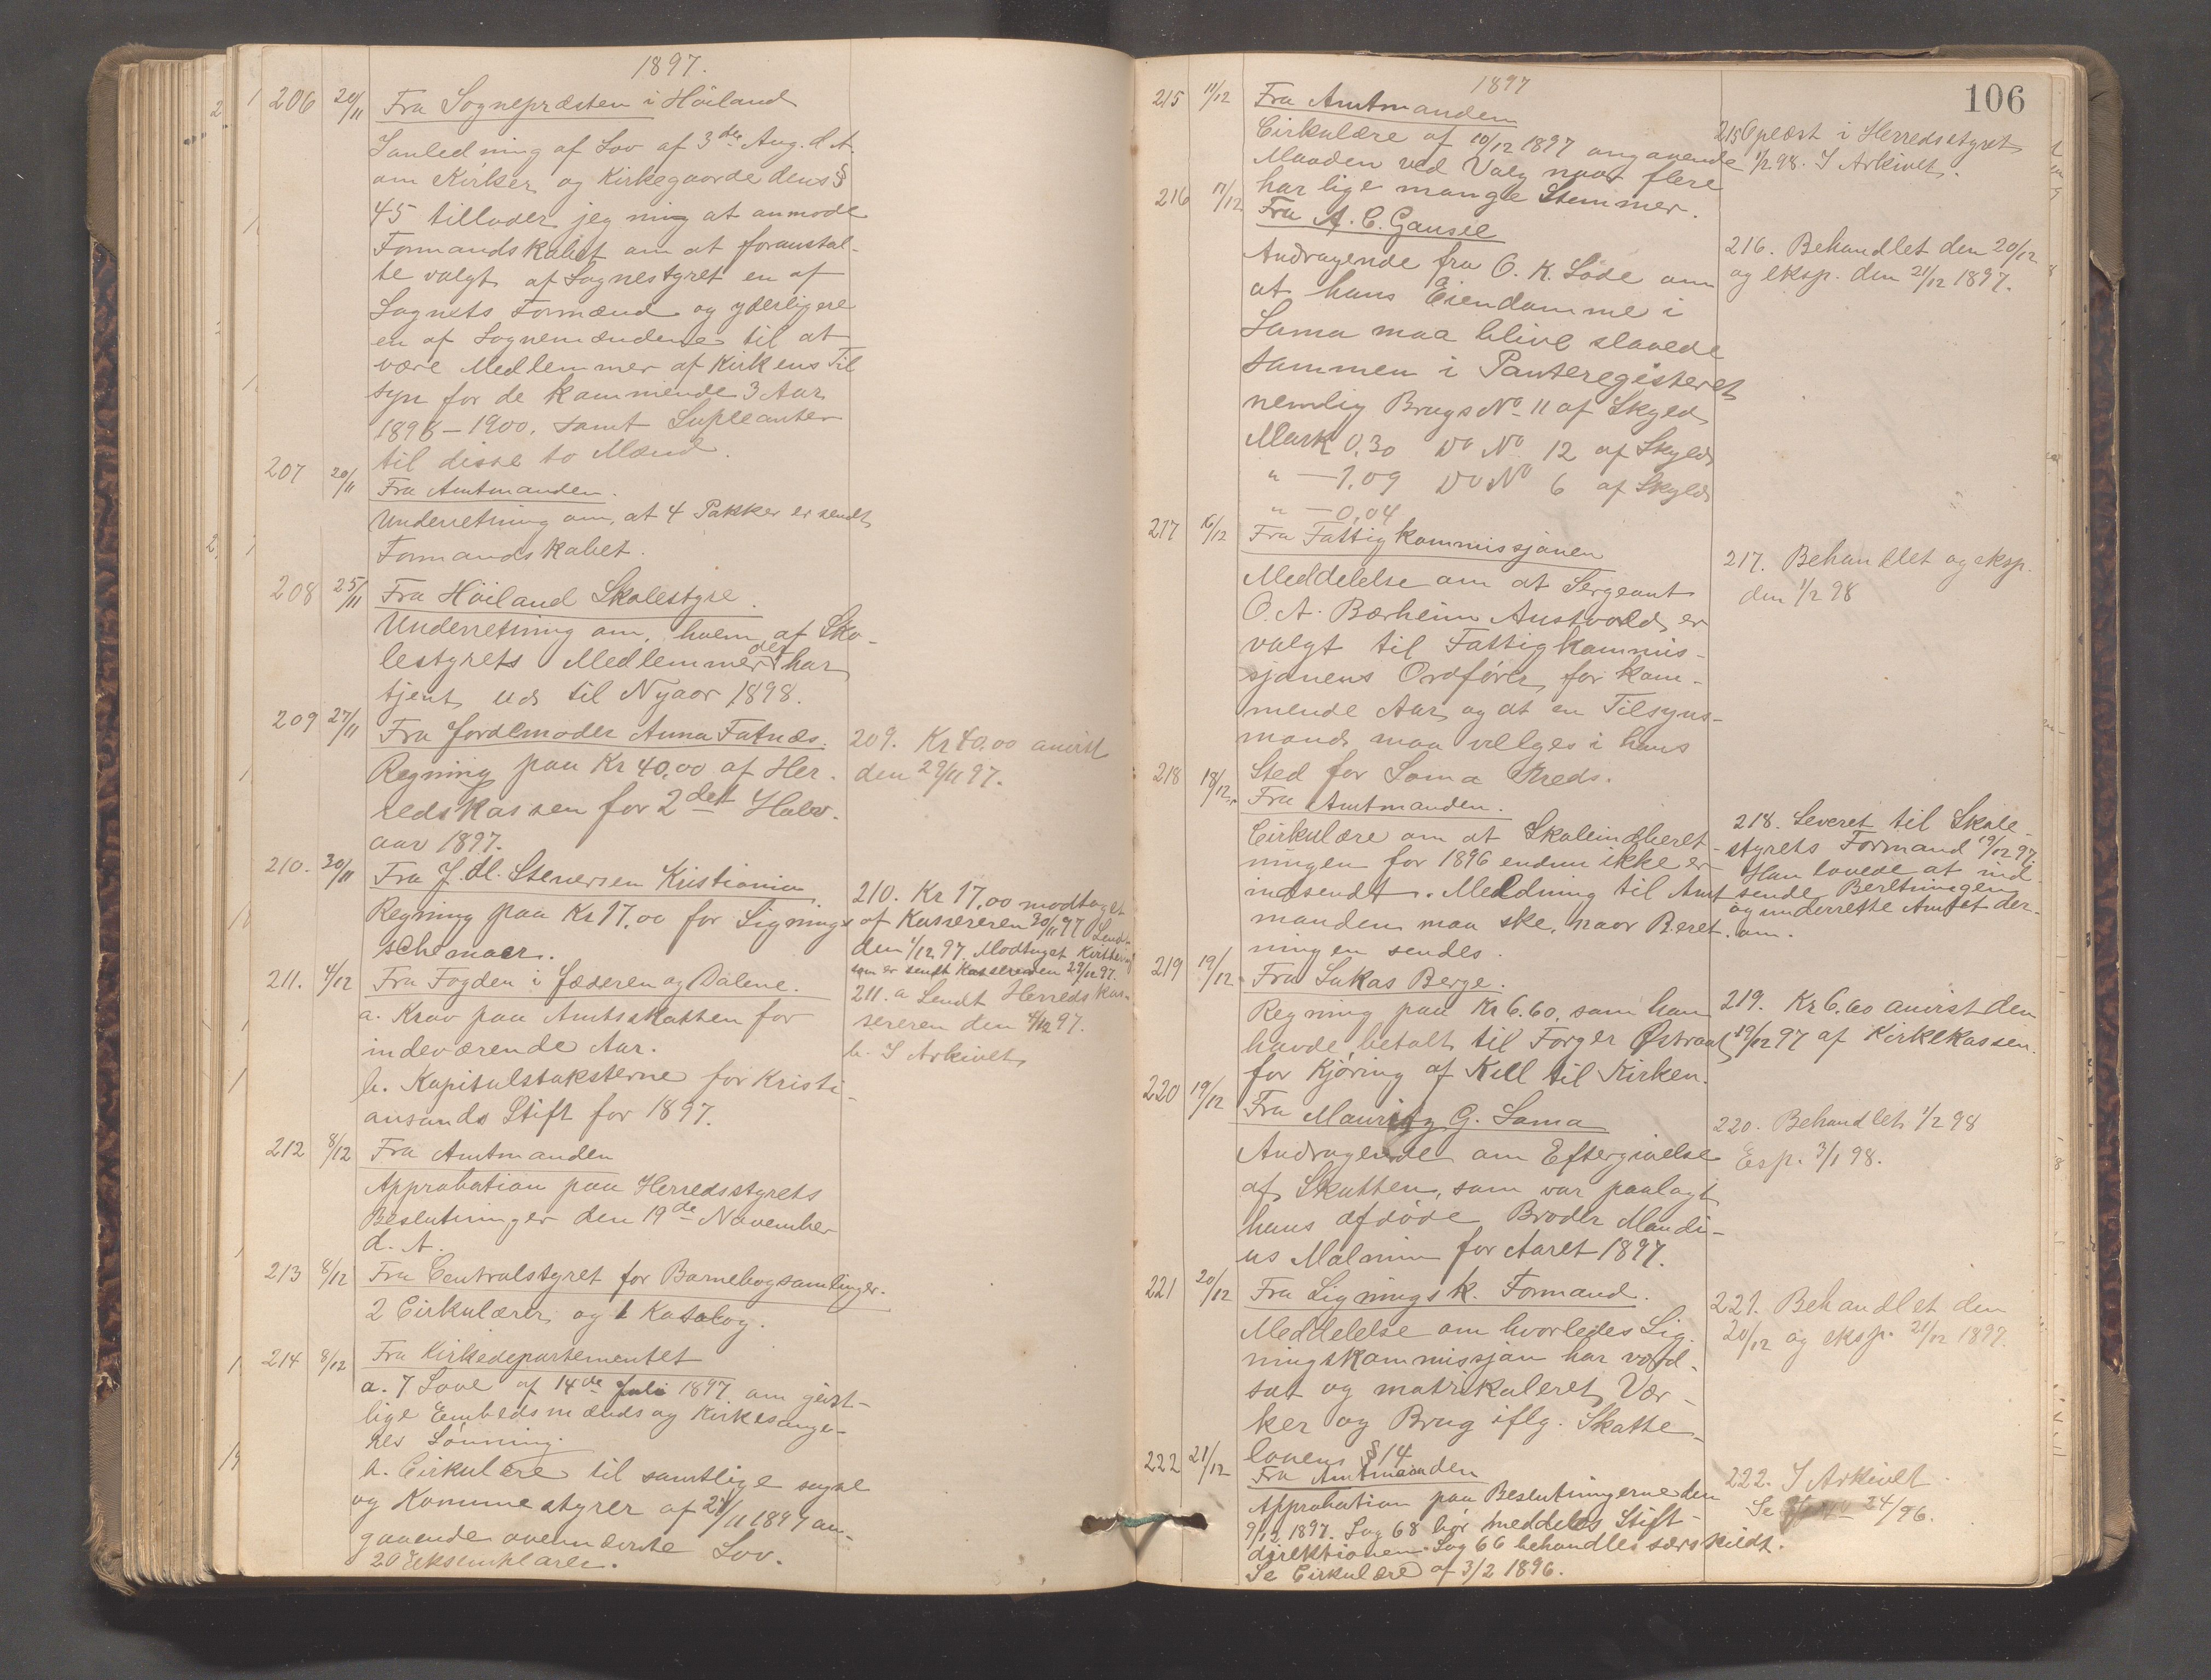 1897.
206 20/11 Fra Sognepræsten i Höiland
I anledning af Lov af 3die Aug. d. A.
om Kirker og Kirkegaarde dens §
45 tillader jeg mig at anmode
Formandskabet om at foranstal-
te valgt af Sognestyret en af
Sognets Formænd og yderligere
en af Sognemændene til at
være Medlemmer af Kirkens Til
syn for de kommende 3 Aar
1898 – 1900, samt Supleanter
til disse to Mænd.
207 20/11 Fra Amtmanden.
Underretning om, at 4 Pakker er sendt
Formandskabet.
208 25/11 Fra Höiland Skolestyre.
Underretning om, hvem af Sko-
lestyrets Medlemmer der har
tjent ud til Nyaar 1898.
209 27/11 Fra Jordemoder Anna Fatnæs.
Regning paa Kr 40,00 af Her-
redskassen for 2det Halv-
aar 1897.
209. Kr 40,00 anvist
den 29/11 97.
210. 30/11 Fra J. M. Stenersen Kristiania
Regning paa Kr 17,00 for Lignings
schemaer.
210. Kr 17,00 modtaget
af Kassereren 30/11 97 Sendt
den 1/12 97. Modtaget Kvittering
som er sendt Kassereren 29/12 97.
211. 4/12 Fra Fogden i Jæderen og Dalene.
a. Krav paa Amtsskatten for
indeværende Aar.
b. Kapitalstaksterne for Kristi-
ansands Stift for 1897.
211. a Sendt Herredskas-
sereren den 4/12 97.
b. I Arkivet
212 8/12 Fra Amtmanden
Approbation paa Herredsstyrets
Beslutninger den 19de November
d. A.
213 8/12 Fra Centralstyret for Barnebogsamlinger.
2 Cirkulærer og 1 Katalog.
214 8/12 Fra Kirkedepartementet
a. 7 Love af 14de Juli 1897 om geist-
lige Embedsmænds og Kirkesange-
res Lönning.
b. Cirkulære til samtlige sogne
og Kommunestyrer af 27/11 1897 an-
gaaende ovennævnte Lov.
20 Eksemplarer.
106
1897
215 11/12 Fra Amtmanden
Cirkulære af 10/12 1897 angaaende
Maaden ved Valg naar flere
har lige mange Stemmer.
215 Oplæst i Herredsstyret
1/2 98. I Arkivet.
216 17/12 Fra A. C. Gausel
Andragende fra O. K. Lode om
at hans Eiendomme i
Soma maa blive slaaede
sammen i Panteregisteret
nemlig Brugs No 11 af Skyld
Mark 0,30 Do No 12 af Skyld
" — 1,09 Do No 6 af Skyld
" — 0,04
216. Behandlet den 20/12
og eksp. den 21/12 1897.
217 16/12 Fra Fattigkommissjonen
Meddelelse om at Sergeant
O. A. Bærheim Austvold er
valgt til Fattigkommis-
sjonens Ordförer for kom-
mende Aar og at en Tilsyns-
mand maa vælges i hans
Sted for Soma Kreds.
217. Behandlet og eksp.
den 1/2 98
218 18/12 Fra Amtmanden.
Cirkulære om at Skoleindberet-
ningen for 1896 endnu ikke er
indsendt. Meldning til Amt
manden maa ske, naar Beret-
ningen sendes.
218. Leveret til Skole-
styrets Formand 19/12 97.
Han lovede at ind-
sende Beretningen
og underrette Amtet der-
om.
219 19/12 Fra Lukas Berge.
Regning paa Kr 6.60, som han
havde betalt til Torger Østraat
for Kjöring af Kul til Kirken.
219. Kr 6,60 anvist den
19/12 97 af Kirkekassen.
220 19/12 Fra Mauritz G. Soma
Andragende om Eftergivelse
af Skatten, som var paalagt
hans afdöde Broder Mandi-
us Malmin for Aaret 1897.
220. Behandlet 1/2 98
Esp. 3/1 98.
221 20/12 Fra Ligningsk. Formand.
Meddelelse om hvorledes Lig-
ningskommissjon har værd-
sat og matrikuleret Vær-
ker og Brug iflg. Skatte-
lovens § 14
221. Behandlet den
20/12 og eksp. 21/12 1897.
222 21/12 Fra Amtmanden
Approbation paa Beslutningerne den
9/12 1897. Sag 68 bör meddeles Stift-
direktionen. Sag 66 behandles særskildt.
Se Cirkulære af 3/2 1896.
222. I Arkivet
Se 24/96.